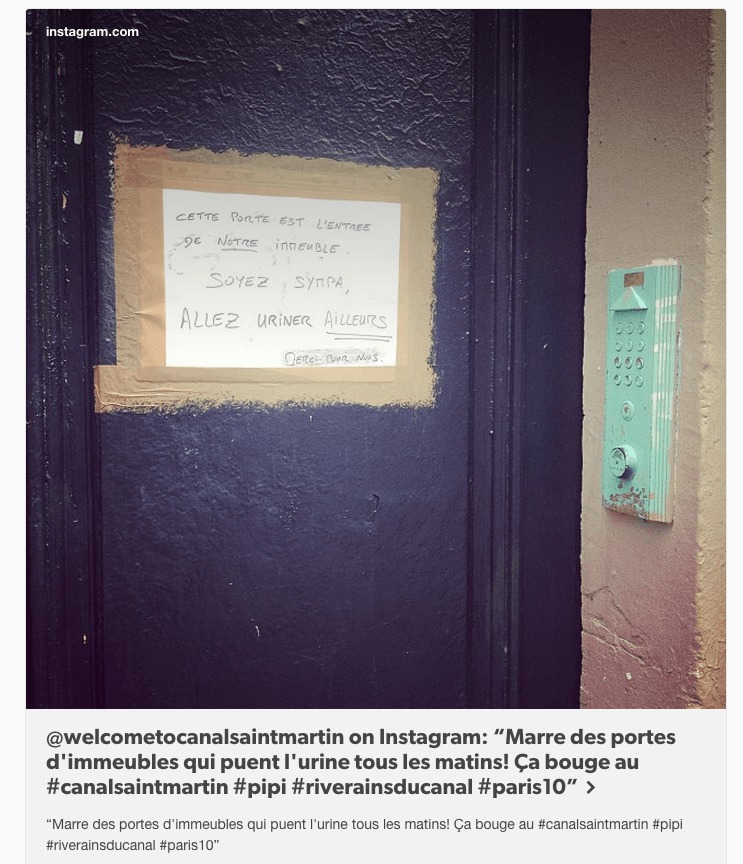 instagram.com
CETTE PORTE EST L'ENTREE
DE NOTRE IMMEUBLE.
SOYEZ SYMPA,
ALLEZ URINER AILLEURS
MERCI POUR NOUS.
@welcometocanalsaintmartin on Instagram: “Marre des portes
d'immeubles qui puent l'urine tous les matins! Ça bouge au
#canalsaintmartin #pipi #riverainsducanal #paris10” >
“Marre des portes d'immeubles qui puent l'urine tous les matins! Ça bouge au #canalsaintmartin #pipi
#riverainsducanal #paris10”